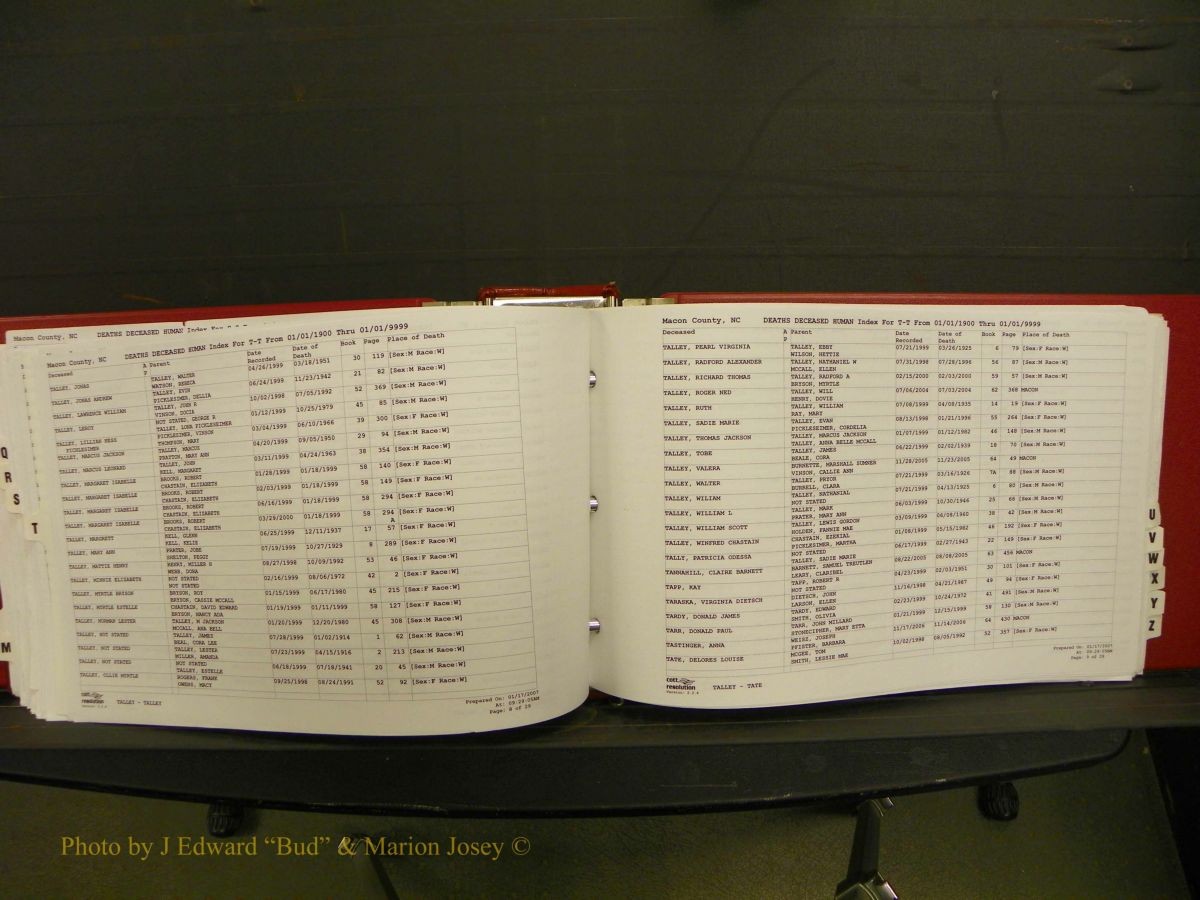 Macon County, NC DEATHS DECEASED HUMAN Index
Macon County, NC DEATHS DECEASED HUMAN Index For T-T From 01/01/1900 Thru 01/01/9999
Deceased A P Parent Date Recorded Date of Death Book Page Place of Death
TALLEY, JONAS TALLEY, WALTER 04/26/1999 03/18/1951 30 119 [Sex:M Race:W]
WATSON, REBECA
TALLEY, JONAS ANDREW TALLEY, EVIN 06/24/1998 11/23/1942 21 82 [Sex:M Race:W]
PICKLESIMER, DELLIA
TALLEY, LAWRENCE WILLIAM TALLEY, JOHN R 10/02/1998 07/05/1992 52 369 [Sex:M Race:W]
VINSON, DOCIA
TALLEY, LEROY NOT STATED, GEORGE R 01/12/1999 10/25/1979 45 85 [Sex:M Race:W]
TALLEY, LORA PICKLESHIMER
TALLEY, LILLIAN NESS PICKLESIMER PICKLESIMER, VINSON 03/04/1999 06/10/1966 39 300 [Sex:F Race:W]
THOMPSON, MARY
TALLEY, MARCUS JACKSON TALLEY, MARCUS 04/20/1999 09/05/1950 29 94 [Sex:M Race:W]
PRAYTON, MARY ANN
TALLEY, MARCUS LEONARD TALLEY, JOHN 03/11/1999 04/24/1963 38 354 [Sex:M Race:W]
KELL, MARGARET
TALLEY, MARGARET ISABELLE BROOKS, ROBERT 01/28/1999 01/18/1999 58 140 [Sex:F Race:W]
CHASTAIN, ELIZABETH
TALLEY, MARGARET ISABELLE BROOKS, ROBERT 02/03/1999 01/18/1999 58 149 [Sex:F Race:W]
CHASTAIN, ELIZABETH
TALLEY, MARGARET ISABELLE BROOKS, ROBERT 06/16/1999 01/18/1999 58 294 [Sex:F Race:W]
CHASTAIN, ELIZABETH
TALLEY, MARGARET ISABELLE BROOKS, ROBERT 03/29/2000 01/18/1999 58 294 A [Sex:F Race:W]
CHASTAIN, ELIZABETH
TALLEY, MARGRETT KELL, GLENN 06/25/1999 12/11/1937 17 57 [Sex:F Race:W]
KELL, KELIE
TALLEY, MARY ANN PRATER, JOBE 07/19/1999 10/27/1929 8 289 [Sex:F Race:W]
SHELTON, PEGGY
TALLEY, MATTIE HENRY HENRY, MILLER S 08/27/1998 10/09/1992 53 46 [Sex:F Race:W]
WEBB, DORA
TALLEY, MINNIE ELIZABETH NOT STATED 02/16/1999 08/06/1972 42 2 [Sex:F Race:W]
NOT STATED
TALLEY, MYRTLE BRYSON BRYSON, ROY 01/15/1999 06/17/1980 45 215 [Sex:F Race:W]
BRYSON, CASSIE MCCALL
TALLEY, MYRTLE ESTELLE CHASTAIN, DAVID EDWARD 01/19/1999 01/11/1999 58 127 [Sex:F Race:W]
BRYSON, NANCY ADA
TALLEY, NORMAN LESTER TALLEY, M JACKSON 01/20/1999 12/20/1980 45 308 [Sex:M Race:W]
MCCALL, ANA BELL
TALLEY, NOT STATED TALLEY, JAMES 07/28/1999 01/02/1914 1 62 [Sex:M Race:W]
BEAL, CORA LEE
TALLEY, NOT STATED TALLEY, LESTER 07/23/1999 04/15/1916 2 213 [Sex:M Race:W]
MILLER, AMANDA
TALLEY, NOT STATED NOT STATED 06/18/1999 07/18/1941 20 45 [Sex:M Race:W]
TALLEY, ESTELLE
TALLEY, OLLIE MYRTLE ROGERS, FRANK 09/25/1998 08/24/1991 52 92 [Sex:F Race:W]
OWENS, MACY
cott resolution
TALLEY - TALLEY
Prepared On: 01/17/2007
At: 09:29:05AM
Page: 8 of 29
Macon County, NC DEATHS DECEASED HUMAN Index For T-T From 01/01/1900 Thru 01/01/9999
Deceased A P Parent Date Recorded Date of Death Book Page Place of Death
TALLEY, PEARL VIRGINIA TALLEY, EBBY 07/21/1999 03/26/1925 6 79 [Sex:F Race:W]
WILSON, HETTIE
TALLEY, RADFORD ALEXANDER TALLEY, NATHANIEL W 07/31/1998 07/28/1996 56 87 [Sex:M Race:W]
MCCALL, ELLEN
TALLEY, RICHARD THOMAS TALLEY, RADFORD A 02/15/2000 02/03/2000 59 57 [Sex:M Race:W]
BRYSON, MYRTLE
TALLEY, ROGER NED TALLEY, WILL 07/06/2004 07/03/2004 62 368 MACON
HENRY, DOVIE
TALLEY, RUTH TALLEY, WILLIAM 07/08/1999 04/08/1935 14 19 [Sex:F Race:W]
RAY, MARY
TALLEY, SADIE MARIE TALLEY, EVAN 08/13/1998 01/21/1996 55 264 [Sex:F Race:W]
PICKLESEIMER, CORDELIA
TALLEY, THOMAS JACKSON TALLEY, MARCUS JACKSON 01/07/1999 01/12/1982 46 148 [Sex:M Race:W]
TALLEY, ANNA BELLE MCCALL
TALLEY, TOBE TALLEY, JAMES 06/22/1999 02/02/1939 18 70 [Sex:M Race:W]
BEALE, CORA
TALLEY, VALERA BURNETTE, MARSHALL SUMNER 11/28/2005 11/23/2005 64 49 MACON
VINSON, CALLIE ANN
TALLEY, WALTER TALLEY, PRYOR 07/21/1999 03/16/1926 7A 88 [Sex:M Race:W]
BURRELL, CLARA
TALLEY, WILIAM TALLEY, NATHANIAL 07/21/1999 04/13/1925 6 80 [Sex:M Race:W]
NOT STATED
TALLEY, WILLIAM L TALLEY, MARK 06/03/1999 10/30/1946 25 66 [Sex:M Race:W]
PRATER, MARY ANN
TALLEY, WILLIAM SCOTT TALLEY, LEWIS GORDON 03/09/1999 06/08/1960 38 42 [Sex:M Race:W]
HOLDEN, FANNIE MAE
TALLEY, WINFRED CHASTAIN CHASTAIN, EZEKIAL 01/08/1999 05/15/1982 46 192 [Sex:F Race:W]
PICKLESIMER, MARTHA
TALLY, PATRICIA ODESSA NOT STATED 06/17/1999 02/27/1943 22 149 [Sex:F Race:W]
TALLEY, SADIE MARIE
TANNAHILL, CLAIRE BARNETT BARNETT, SAMUEL TREUTLEN 08/22/2005 08/08/2005 63 456 MACON
LEARY, CLARIBEL
TAPP, KAY TAPP, ROBERT R 04/23/1999 02/03/1951 30 101 [Sex:F Race:W]
NOT STATED
TARASKA, VIRGINIA DIETSCH DIETSCH, JOHN 11/16/1998 04/21/1987 49 94 [Sex:F Race:W]
LARSON, ELLEN
TARDY, DONALD JAMES TARDY, EDWARD 02/23/1999 10/24/1972 41 491 [Sex:M Race:W]
SMITH, OLIVIA
TARR, DONALD PAUL TARR, JOHN MILLARD 01/21/1999 12/15/1999 58 130 [Sex:M Race:W]
STONECIPHER, MARY ETTA
TASTINGER, ANNA WEISZ, JOSEPH 11/17/2006 11/14/2006 64 430 MACON
PFISTER, BARBARA
TATE, DELORES LOUISE MCGEE, TOM 10/02/1998 08/05/1992 52 357 [Sex:F Race:W]
SMITH, LESSIE MAE
cott resolution
TALLEY - TATE
Prepared On: 01/17/2007
At: 09:29:05AM
Page: 9 of 29
Q
R
S
T
M
U
V
W
X
Y
Z
Photo by J Edward “Bud” & Marion Josey ©